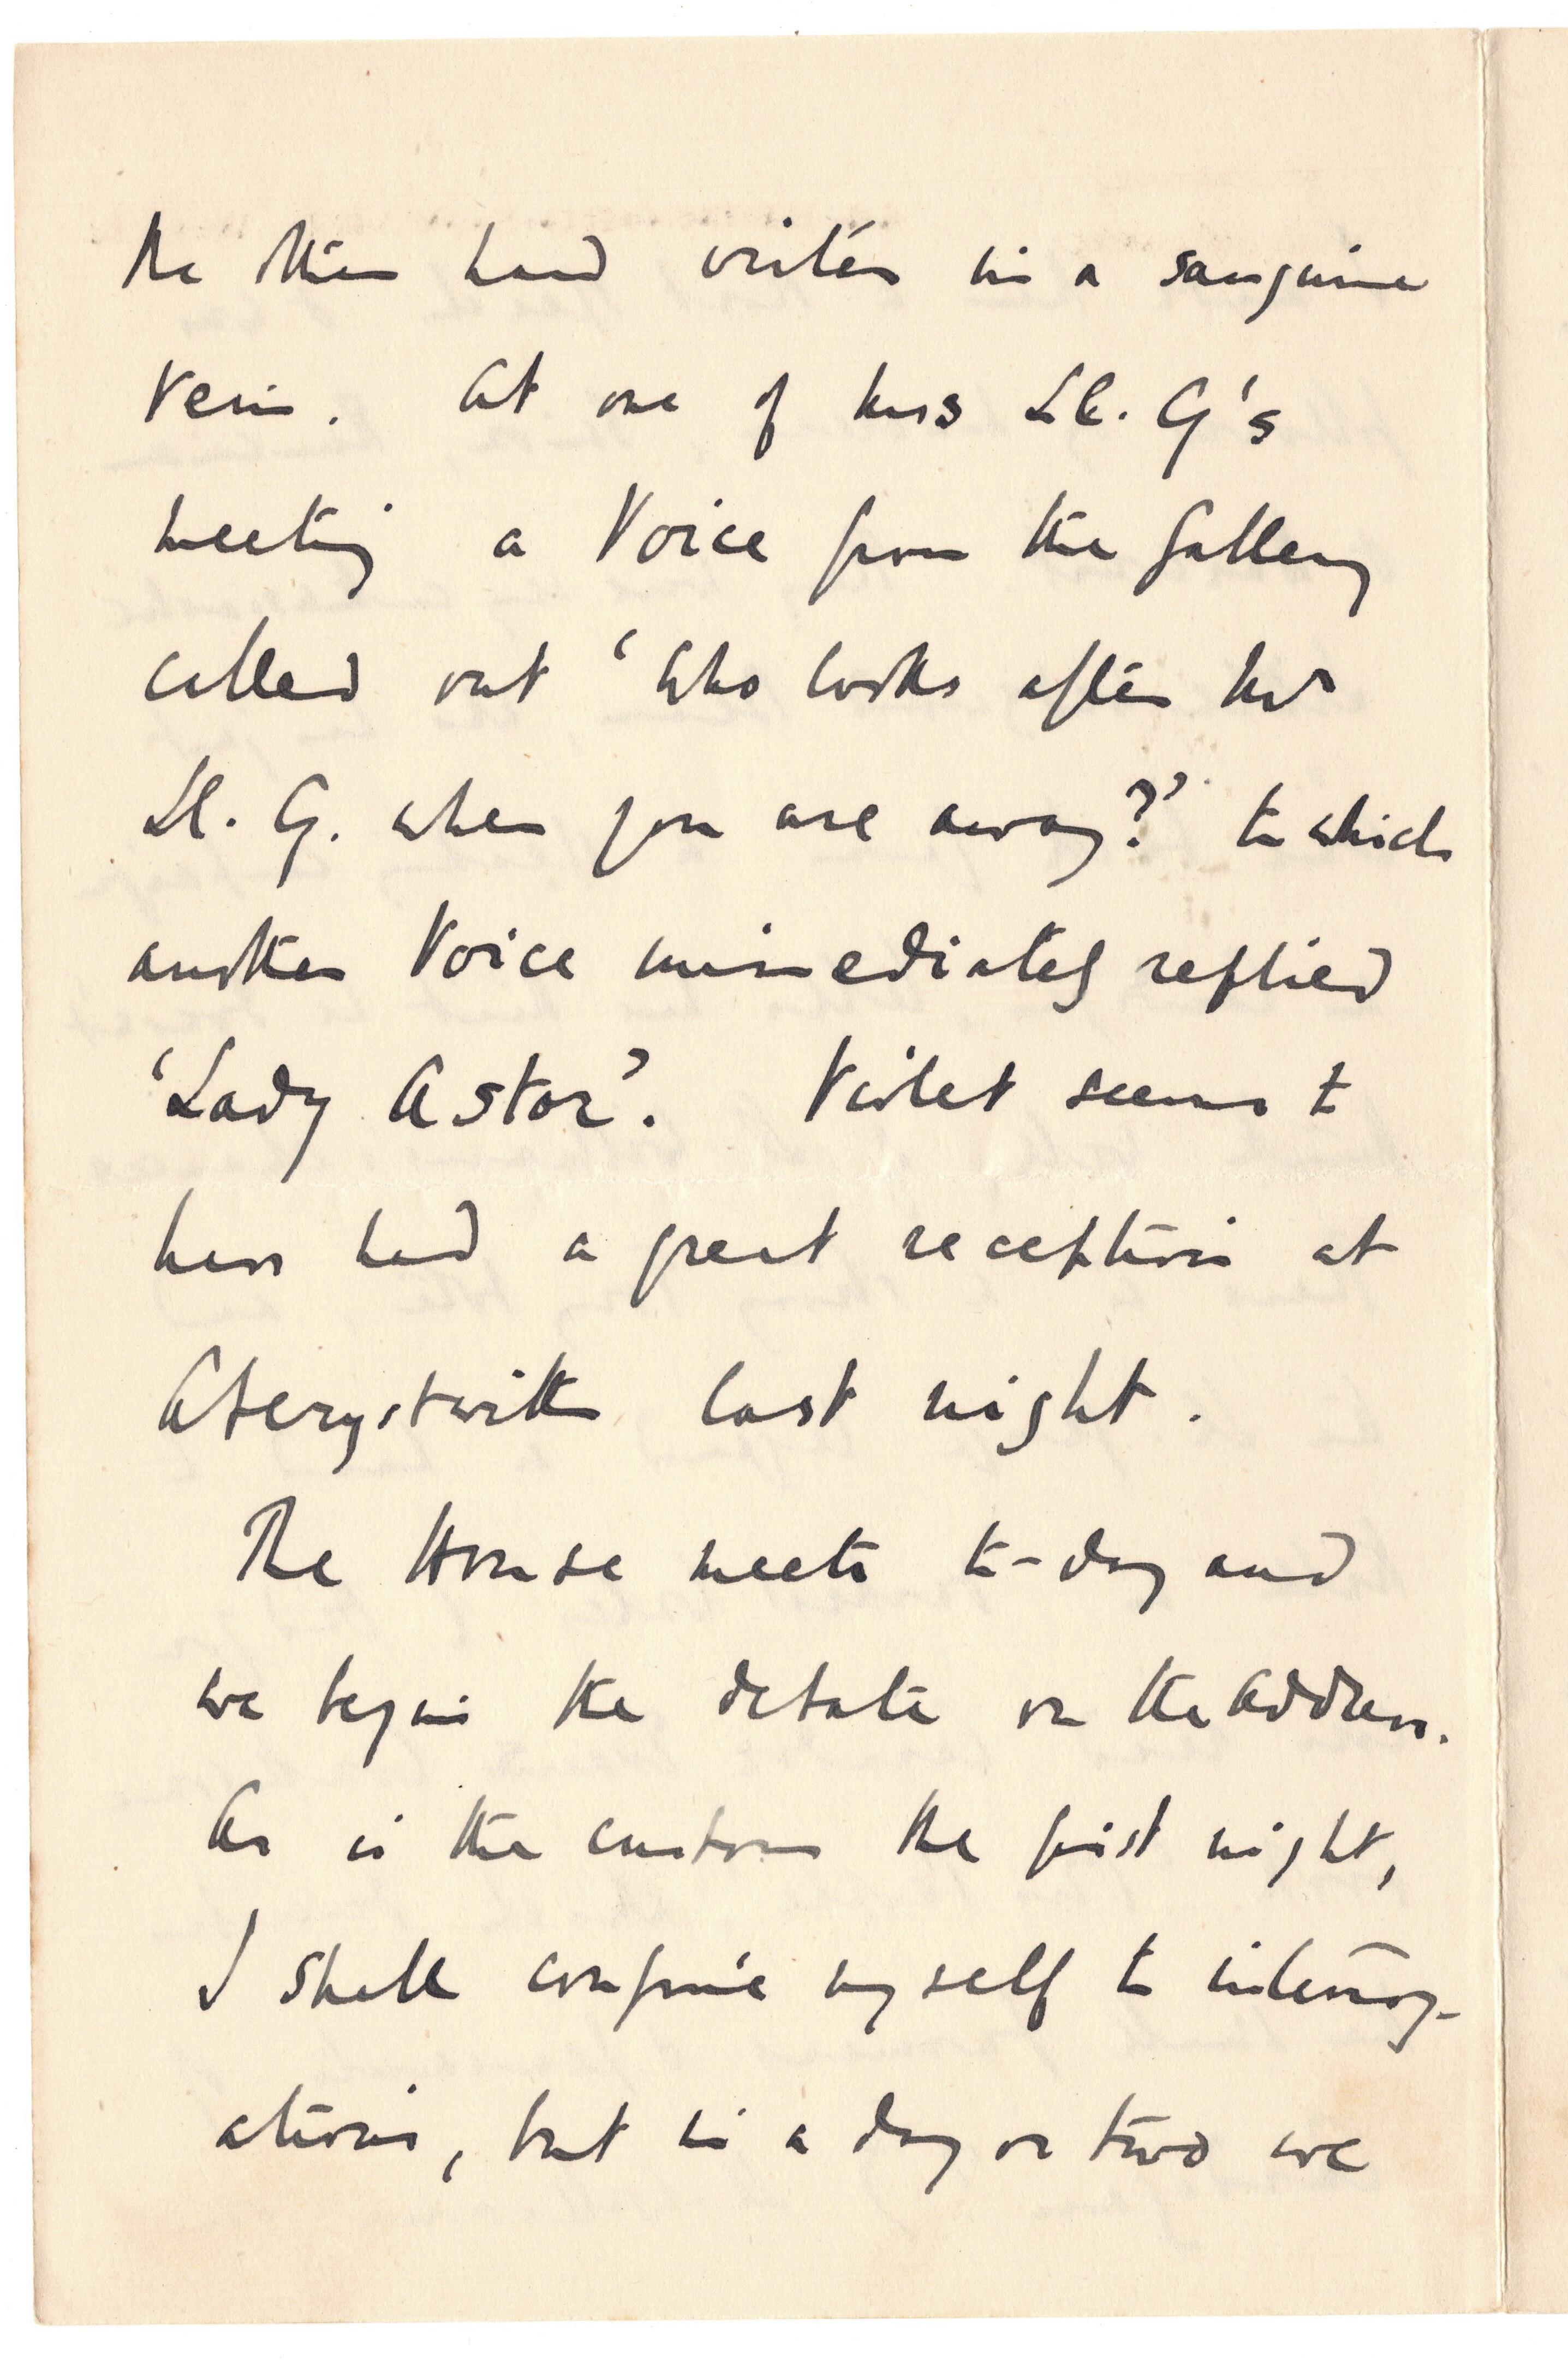 the other hand writes in a sanguine
vein. At one of Mrs Ll. G's
meeting a Voice from the Gallery
called out 'who looks after
Ll. G. when you are away?' to which
another Voice immediately replied
'Lady Astor'. Violet seems to
have had a great reception at
Aberystwith last night.
The House meets to-day and
we begin the debate on the Address.
As is the custom the first night,
I shall confine myself to interrog-
ations, but in a day or two we